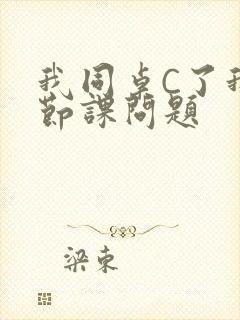 我同桌C了我
节课问题
梁束